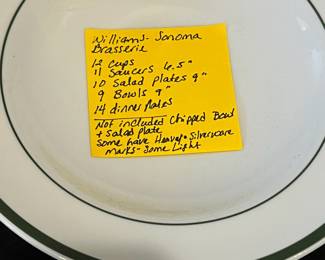 Williams-Sonoma
Brasserie
12 cups
11 Saucers 6.5"
10 Salad plates 9"
9 Bowls 9"
14 dinner Plates
Not included Chipped Bowl
+ Salad plate
Some have Heavy Silverware
Marks - Some Light